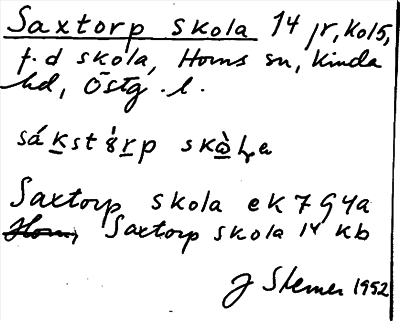 Saxtorp skola 14 jr, kol5,
f.d skola, Horns sn, Kinda
hd, Östg. l.
sákstȣ́rp skὼla
Saxtorp skola ek 7G4a
Saxtorp skola 14 kb
J Sterner 1952